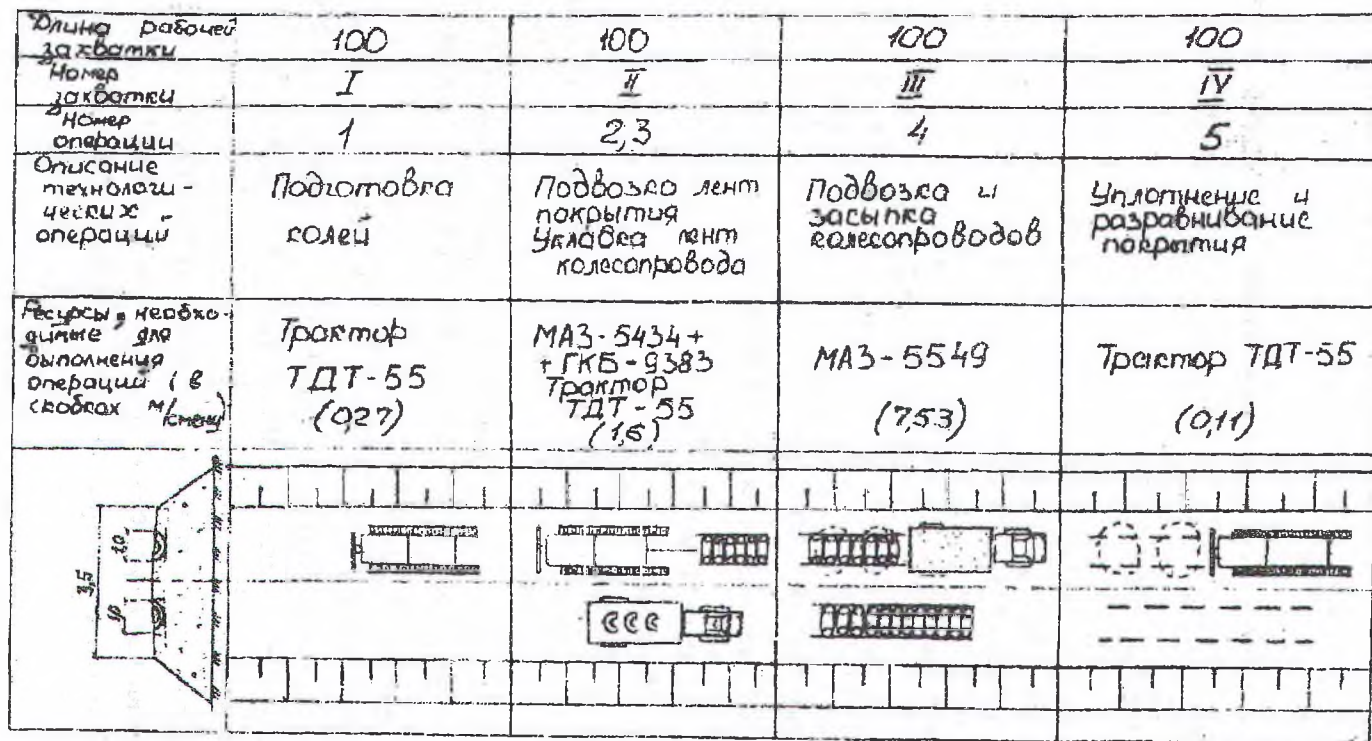 Длина рабочей
захватки
100
100
100
100
Номер
захватки
I
II
III
IV
Номер
операции
1
2,3
4
5
Описание
технологи-
ческих
операции
Подготовка
колей
Подвозка лент
покрытия
Укладка лент
колесопровода
Подвозка и
засыпка
колесопроводов
Уплотнение и
разравнивание
покрытия
Ресурсы, необхо-
димые для
выполнения
операции (в
скобках м/смену)
Трактор
ТДТ-55
(0,27)
МАЗ-5434+
+ГКБ-9383
Трактор
ТДТ-55
(1,6)
МАЗ-5549
(7,53)
Трактор ТДТ-55
(0,11)
3,5